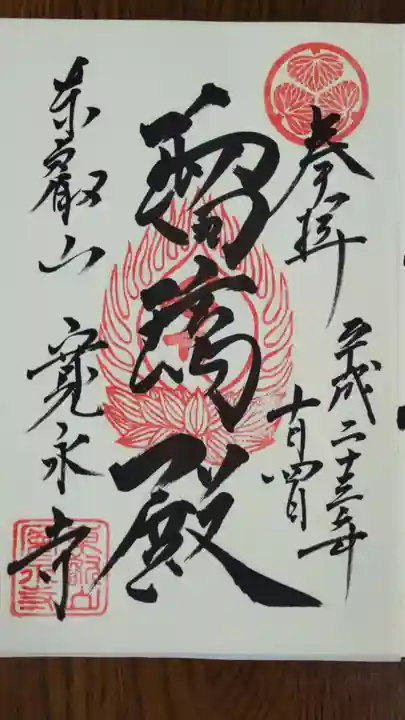 奉拝
平成二十三年
十月四日
瑠璃殿
東叡山 寛永寺